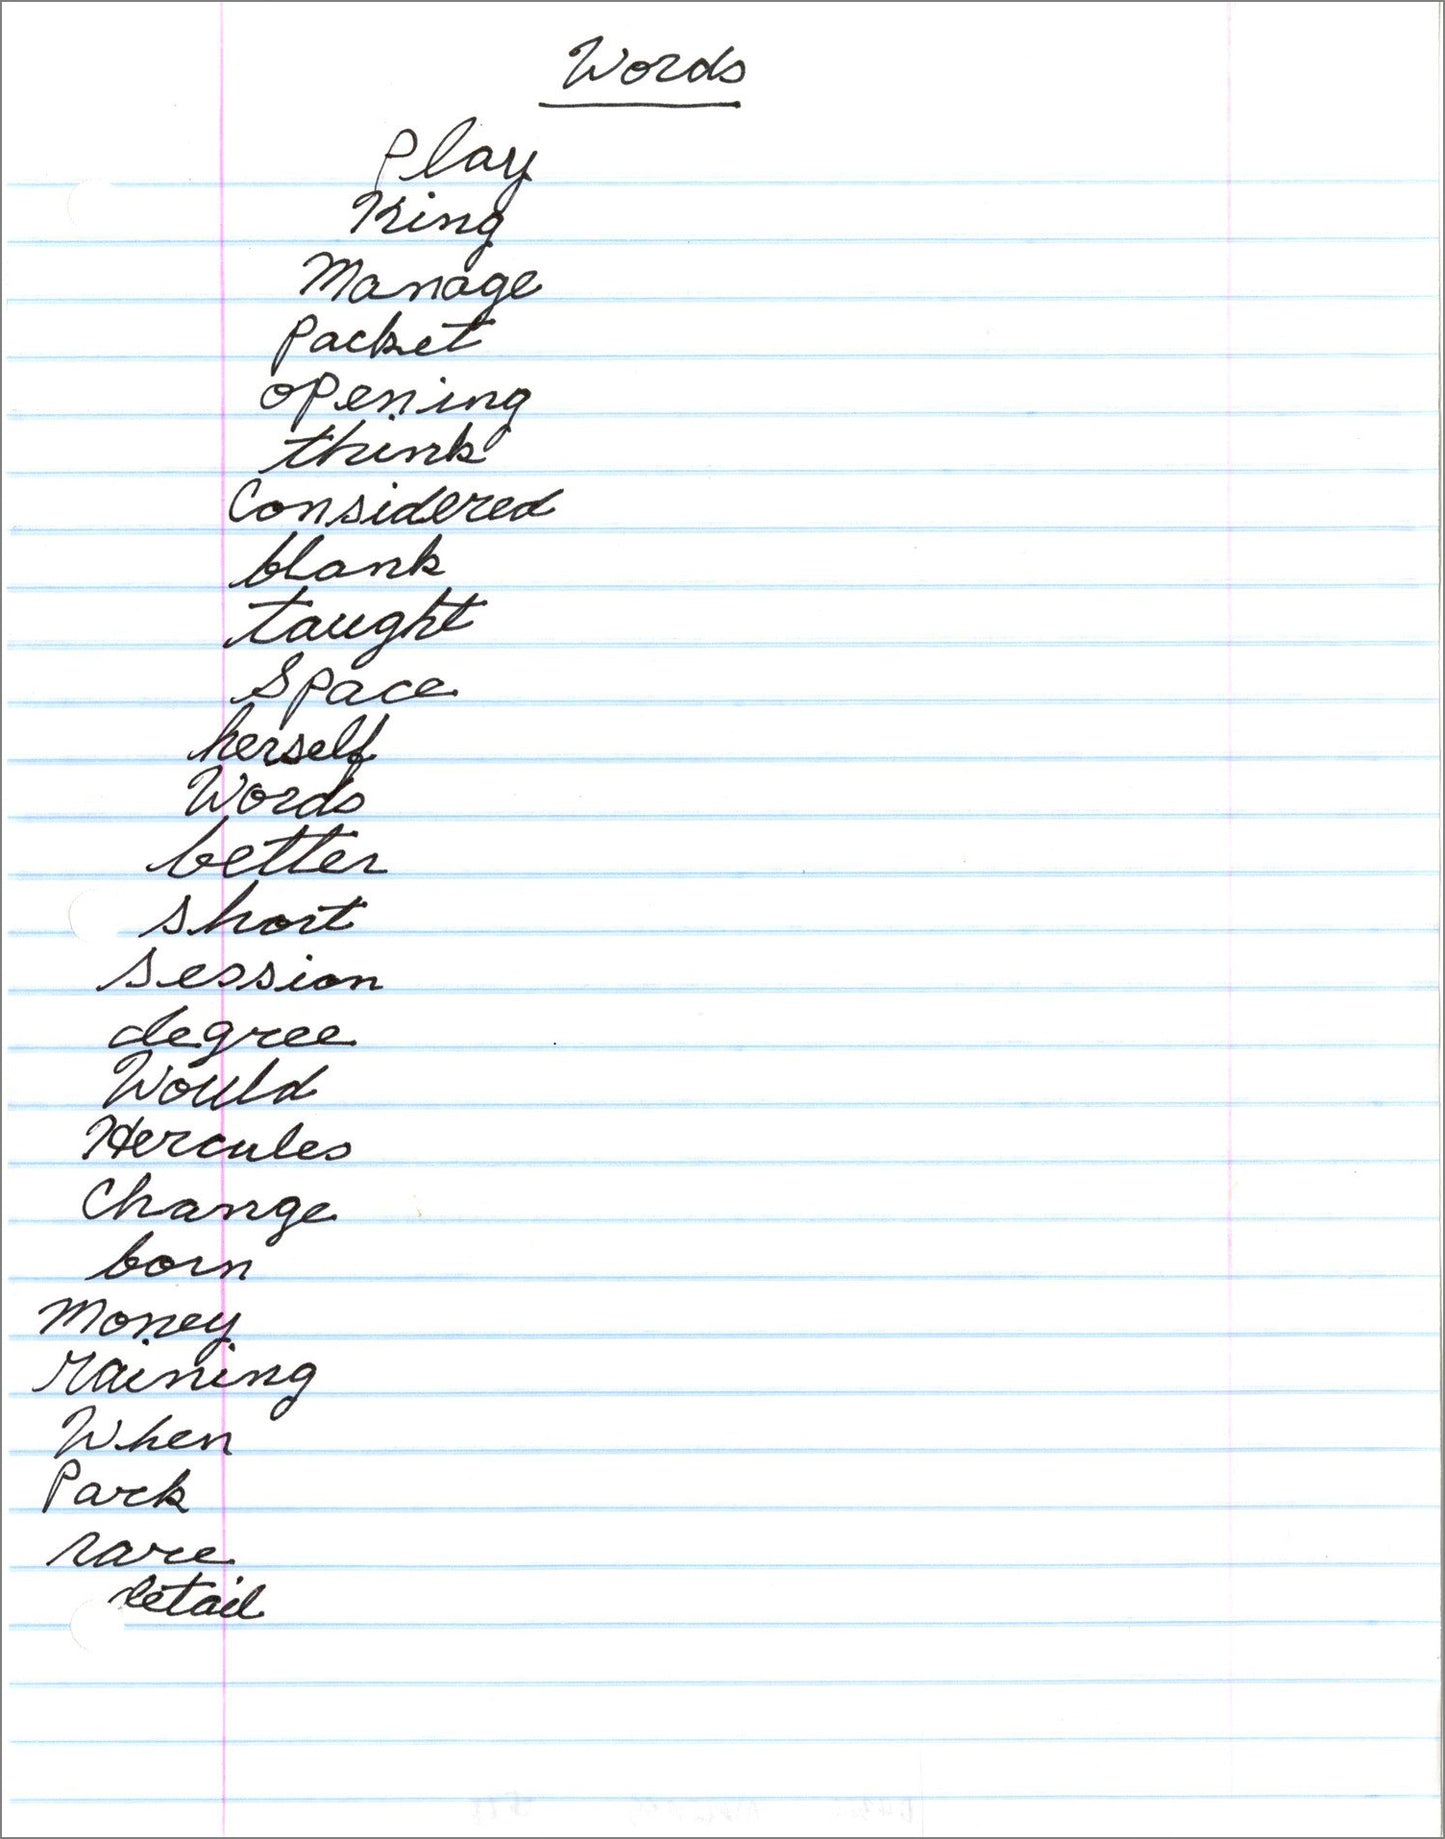 Words
Play
King
Manage
Packet
opening
think
Considered
blank
taught
Space
herself
Words
better
short
session
degree
Would
Hercules
Change
born
Money
raining
When
Park
rare
retail